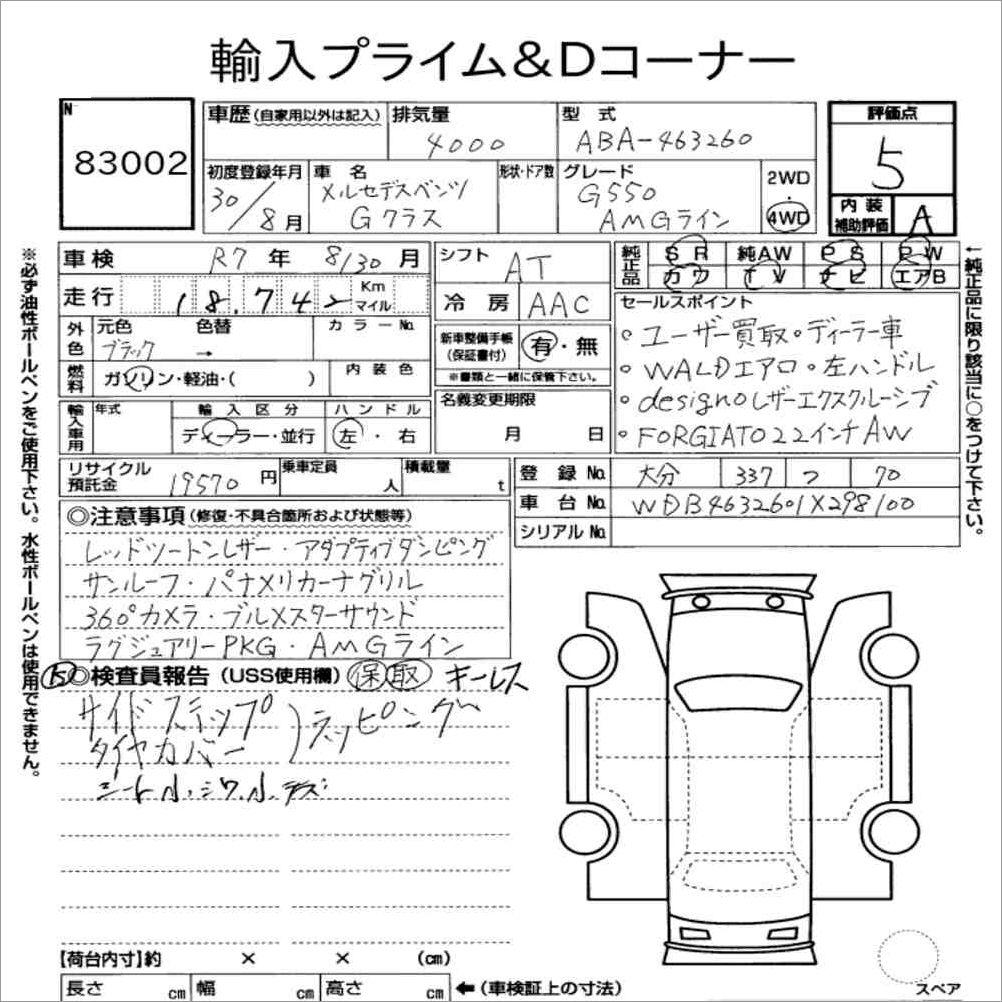 輸入プライム&Dコーナー
N
83002
車歴 (自家用以外は記入)
排気量
4000
型 式
ABA-463260
評価点
5
初度登録年月
30/8月
車 名
メルセデスベンツ
Gクラス
形状・ドア数
グレード
G550
AMGライン
2WD
4WD
内装
補助評価
A
車検 R7年 8/30月
シフト AT
純正品
SR 純AW PS PW
カワ ナビ エアB
走行 18,742 Km
マイル
冷 房 AAC
セールスポイント
。ユーザー買取。ディーラー車
。WALDエアロ。左ハンドル
。designoレザーエクスクルーシブ
。FORGIATO22インチAW
外色
元色 色替 カラーNo.
ブラック →
新車整備手帳
(保証書付)
有・無
※書類と一緒に保管下さい。
燃料
ガソリン・軽油・( )
内 装 色
名義変更期限
月 日
輸入車用
年式
輸 入 区 分
ディーラー・並行
ハ ン ド ル
左・右
リサイクル
預託金
19570円
乗車定員
人
積載量
t
登 録 No. 大分 337 つ 70
車 台 No. WDB4632601X298100
シリアルNo.
◎注意事項 (修復・不具合箇所および状態等)
レッドツートンレザー・アダプティブダンピング
サンルーフ・パナメリカーナグリル
360°カメラ・ブルメスターサウンド
ラグジュアリーPKG・AMGライン
◎検査員報告 (USS使用欄) 保 取 キーレス
サイドステップ
タイヤカバー
)ラッピング
シート小、シワ小、
【荷台内寸】約 × × (cm)
長さ cm 幅 cm 高さ cm
←(車検証上の寸法)
スペア
※必ず油性ボールペンをご使用下さい。水性ボールペンは使用できません。
←純正品に限り該当に○をつけて下さい。